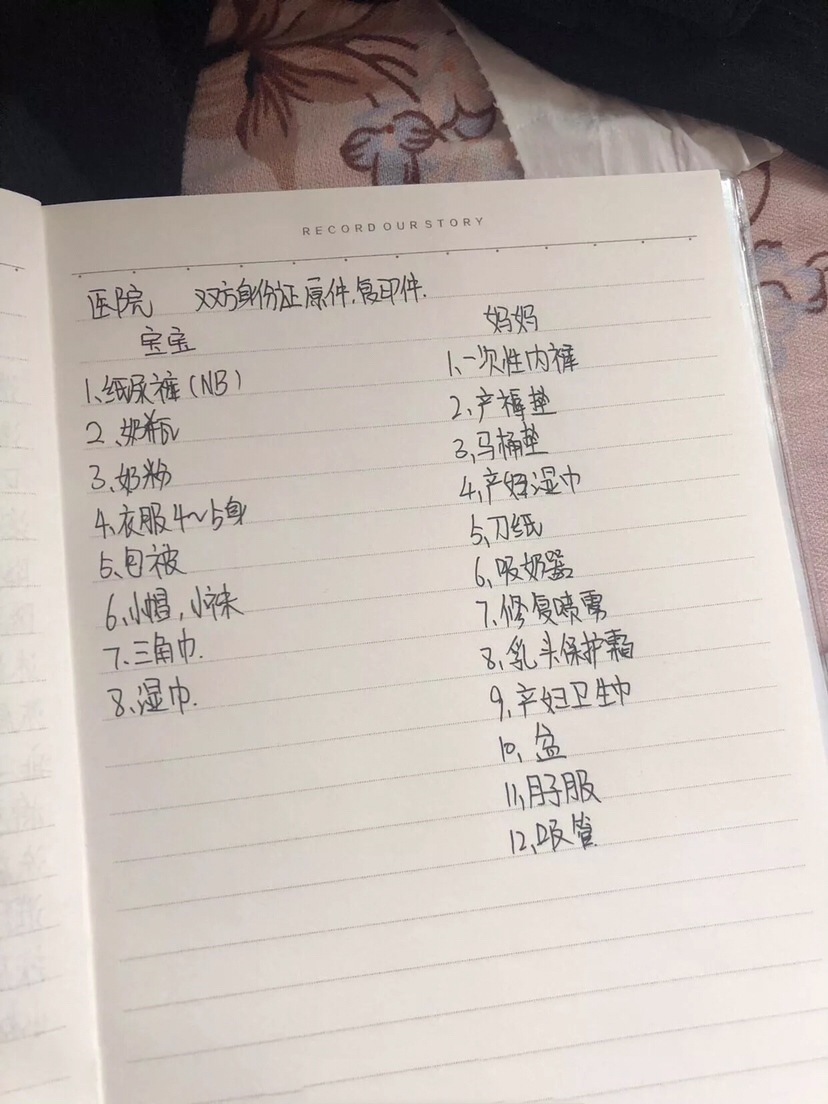 RECORD OUR STORY
医院 双方身份证原件,复印件.
宝宝
1、纸尿裤(NB)
2、奶瓶
3、奶粉
4、衣服4~5身
5、包被
6、小帽,小袜
7、三角巾.
8、湿巾.
妈妈
1、一次性内裤
2、产褥垫
3、马桶垫
4、产妇湿巾
5、刀纸
6、吸奶器
7、修复喷雾
8、乳头保护霜
9、产妇卫生巾
10、盆
11、月子服
12、吸管